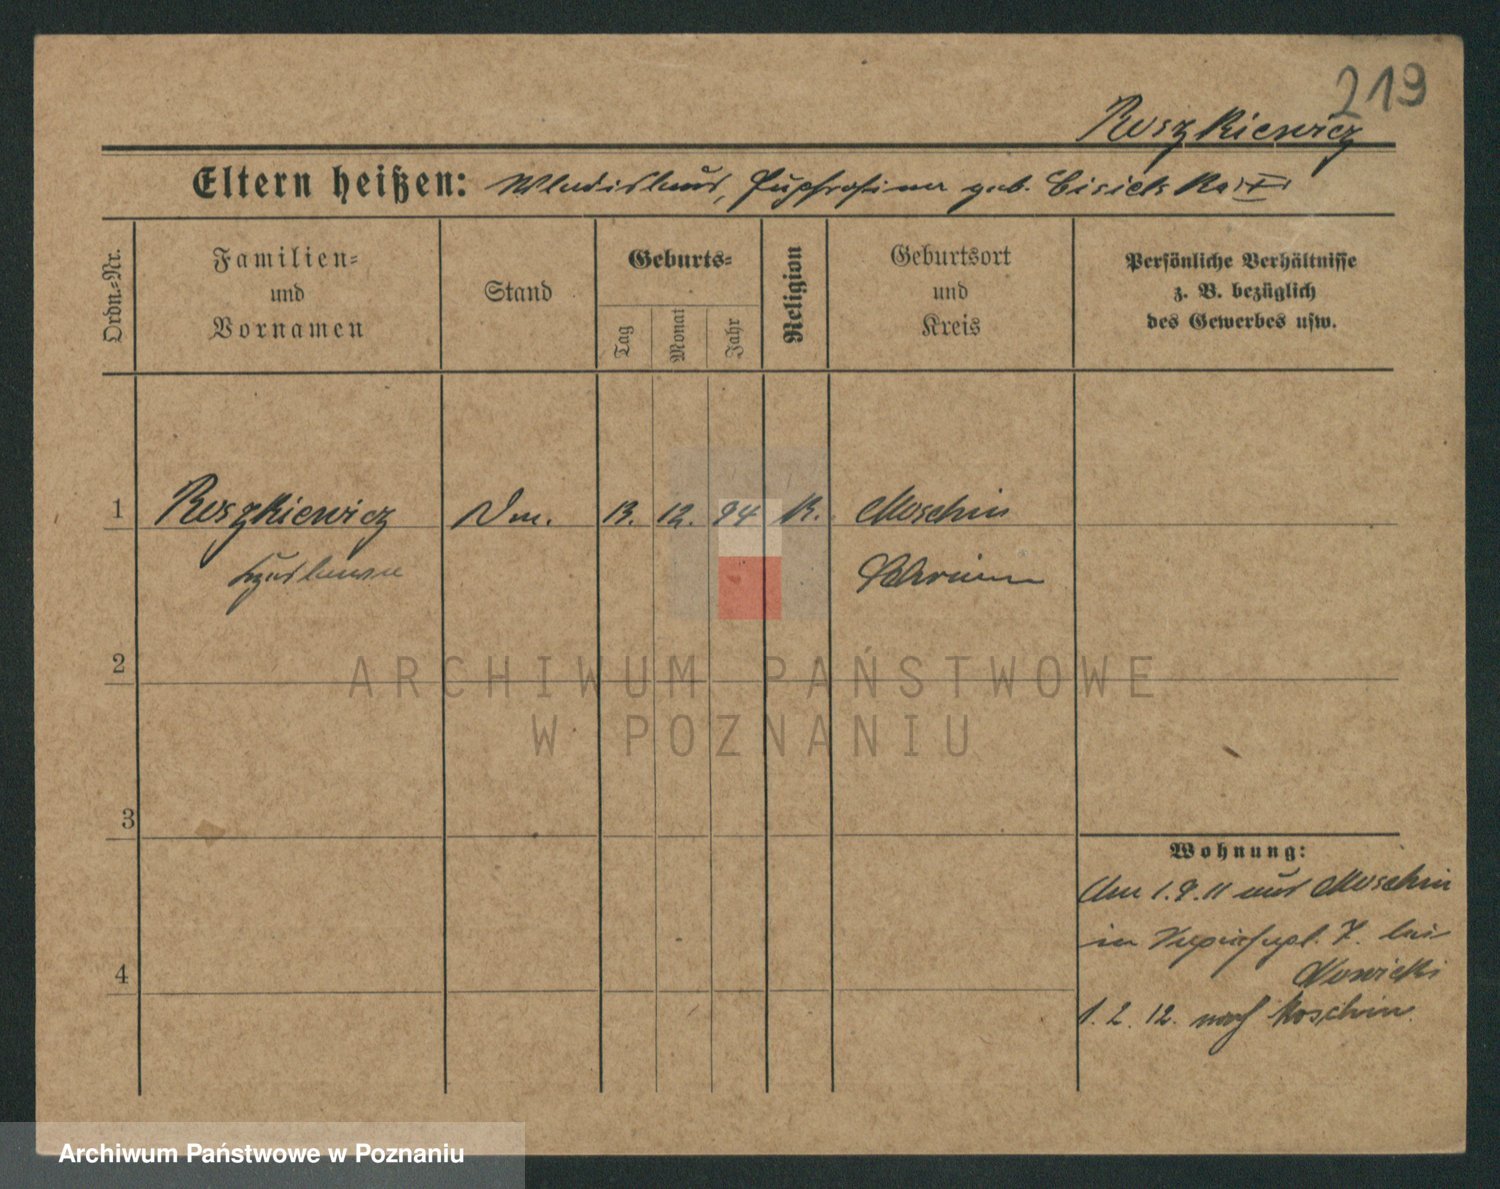 219
Roszkiewicz
Eltern heißen: Wladislaus, geb.
Ordn.-Nr.
Familien-
und
Vornamen
Stand
Geburts-
Tag
Monat
Jahr
Religion
Geburtsort
und
Kreis
Persönliche Verhältnisse
z. B. bezüglich
des Gewerbes usw.
1 Roszkiewicz 13. 12. 94 K. Moschin
Schrimm
2
ARCHIWUM PAŃSTWOWE
W POZNANIU
3
Wohnung:
Am 1.9.11 aus Moschin
in 7. bei
Nowicki
4
1. 2. 12. nach Moschin.
Archiwum Państwowe w Poznaniu